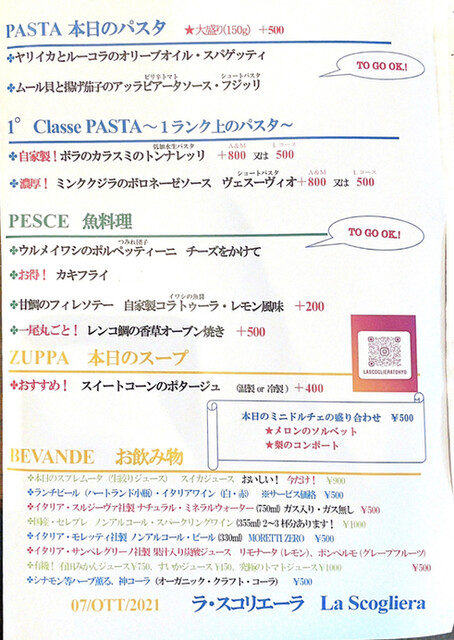 PASTA 本日のパスタ ★大盛り(150g) +500
❖ヤリイカとルーコラのオリーブオイル・スパゲッティ
TO GO OK.!
ピリ辛トマト ショートパスタ
❖ムール貝と揚げ茄子のアッラビアータソース・フジッリ
1° Classe PASTA～1ランク上のパスタ～
A&M Lコース
❖自家製！ボラのカラスミのトンナレッリ +800 又は 500
ショートパスタ A&M Lコース
❖濃厚！ ミンククジラのボロネーゼソース ヴェスーヴィオ+800 又は 500
PESCE 魚料理
TO GO OK.!
つみれ団子
❖ウルメイワシのポルペッティーニ チーズをかけて
❖お得！ カキフライ
イワシの魚醤
❖甘鯛のフィレソテー 自家製コラトゥーラ・レモン風味 +200
❖一尾丸ごと！ レンコ鯛の香草オーブン焼き +500
LASCOGLIERATOKYO
ZUPPA 本日のスープ
❖おすすめ！ スイートコーンのポタージュ (温製 or 冷製) +400
本日のミニドルチェの盛り合わせ ¥500
★メロンのソルベット
★梨のコンポート
BEVANDE お飲み物
❖本日のスプレムータ（生絞りジュース） スイカジュース おいしい！ 今だけ！ ¥900
❖ランチビール（ハートランド小瓶）・イタリアワイン（白・赤） ※サービス価格 ¥500
❖イタリア・スルジーヴァ社製 ナチュラル・ミネラルウォーター(750ml) ガス入り・ガス無し ¥500
セレブレ ノンアルコール・スパークリングワイン (355ml) 2～3 杯分あります！ ¥1000
❖イタリア・モレッティ社製 ノンアルコール・ビール(330ml) MORETTI ZERO ¥500
❖イタリア・サンペレグリーノ社製 果汁入り炭酸ジュース リモナータ (レモン)、ポンペルモ (グレープフルーツ) ¥500
❖有機！有田みかんジュース¥750、すいかジュース¥450、究極のトマトジュース¥1000
❖シナモン等ハーブ薫る、神コーラ （オーガニック・クラフト・コーラ） ¥500
07/OTT/2021 ラ・スコリエーラ La Scogliera